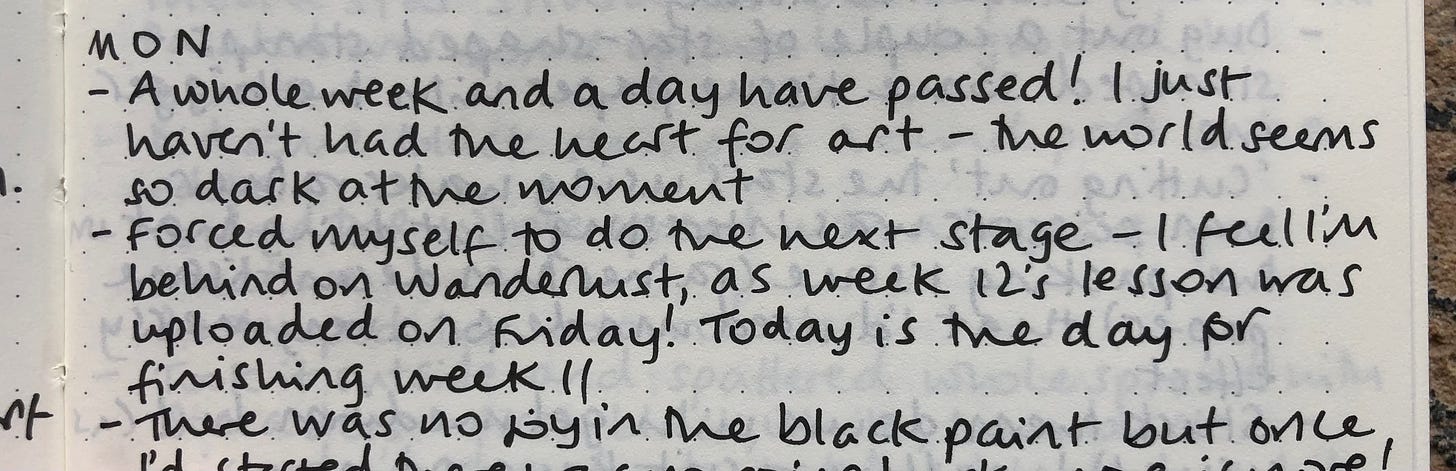 MON
- A whole week and a day have passed! I just
haven't had the heart for art - the world seems
so dark at the moment
- Forced myself to do the next stage - I feel I'm
behind on Wanderlust, as week 12's lesson was
uploaded on Friday! Today is the day for
finishing week 11
- There was no joy in the black paint but once
I'd started